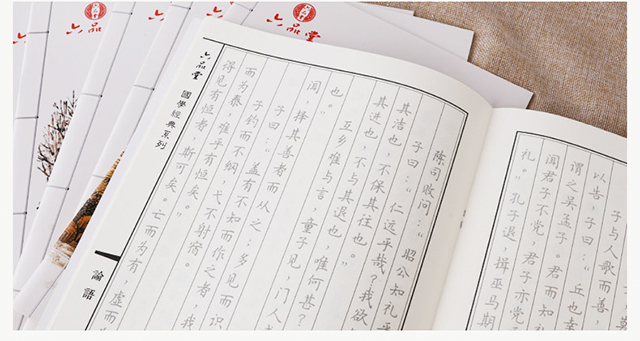 六品堂
六品堂
六品堂
國學經典系列
論語
得见有恒者，斯可矣。亡而为有，虚而
而为泰，难乎有恒矣。”
子钓而不纲，弋不射宿。
子曰：“盖有不知而作之者，我
闻，择其善者而从之；多见而识
也。”
互乡难与言，童子见，门人
其进也，不与其退也，唯何甚？
其洁也，不保其往也。”
子曰：“仁远乎哉？我欲
陈司败问：“昭公知礼乎
礼。”孔子退，揖巫马期
闻君子不党，君子亦党
谓之吴孟子。君而知
以告。子曰：“丘也幸
子与人歌而善，